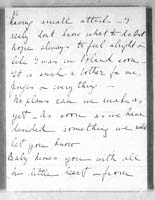 16
having small attacks - I
really dont know what to do but
hope always to feel alright a
like I was in Poland soon -
It is such a bother for me
for every thing -
No plans can we make as
yet - As soon as we have
decided something we will
let you know
Baby kisses you with all
his little heart - from